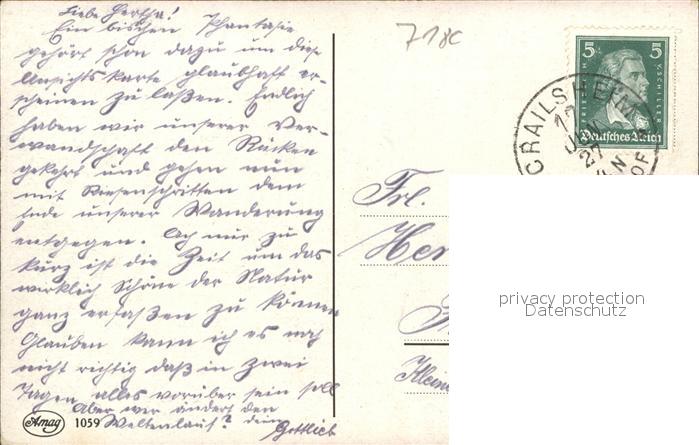 Liebe Hertha!
Ein bischen Phantasie
gehört schon dazu um diese
Ansichtskarte glaubhaft er-
scheinen zu laßen. Endlich
haben wir unserer Ver-
wandschaft den Rücken
gekehrt und gehen nun
mit Riesenschritten dem
Ende unserer Wanderung
entgegen. Ach nur zu
kurz ist die Zeit um das
wirklich Schöne der Natur
ganz erfaßen zu können
Glauben kann ich es noch
nicht richtig daß in zwei
Tagen alles vorüber sein soll
Aber wer ändert den
Weltenlauf? dein Gottlieb
Amag 1059
718c
5 5
FRIEDRICH V. SCHILLER
Deutsches Reich
CRAILSHEIM
27
HOF
Frl.
Her
Kleine
privacy protection
Datenschutz